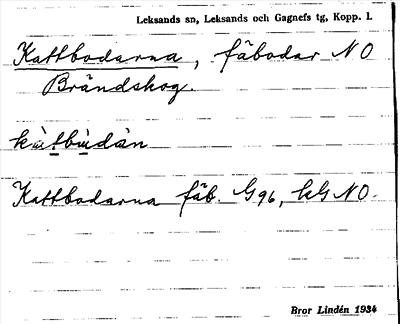 Leksands sn, Leksands och Gagnefs tg, Kopp. l.
Kattbodarna, fäbodar NO
Brändskog.
kàtbùdàn
Kattbodarna fäb. G96, kG NO.
Bror Lindén 1934